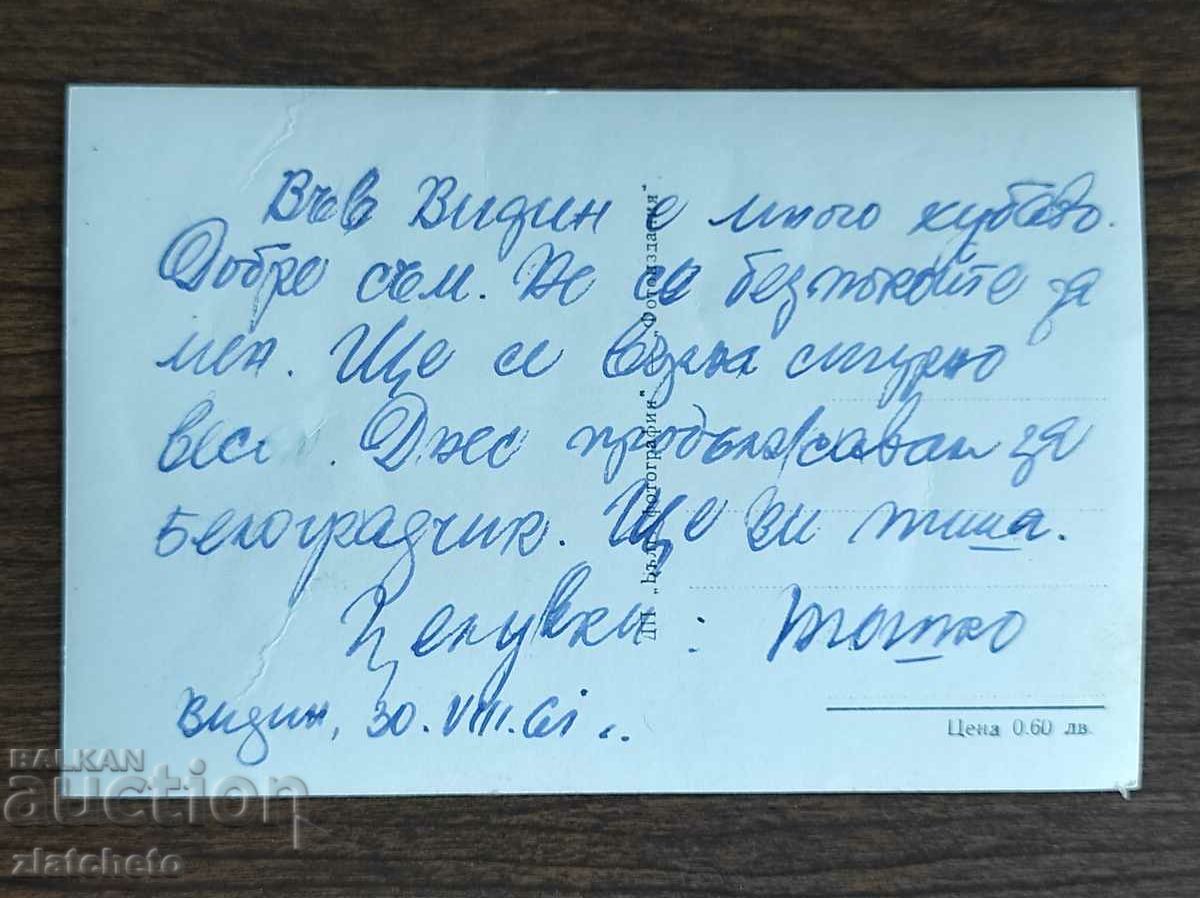 Във Видин е много хубаво.
Добре съм. Не се безпокойте за
мен. Ще се върна сигурно
Днес продължавам за
Белоградчик. Ще ви пиша.
Целувки:
Видин, 30.VIII.61..
ДП „Българска фотография“ „Фотоиздания“
Цена 0.60 лв.
BALKAN
auction
zlatcheto